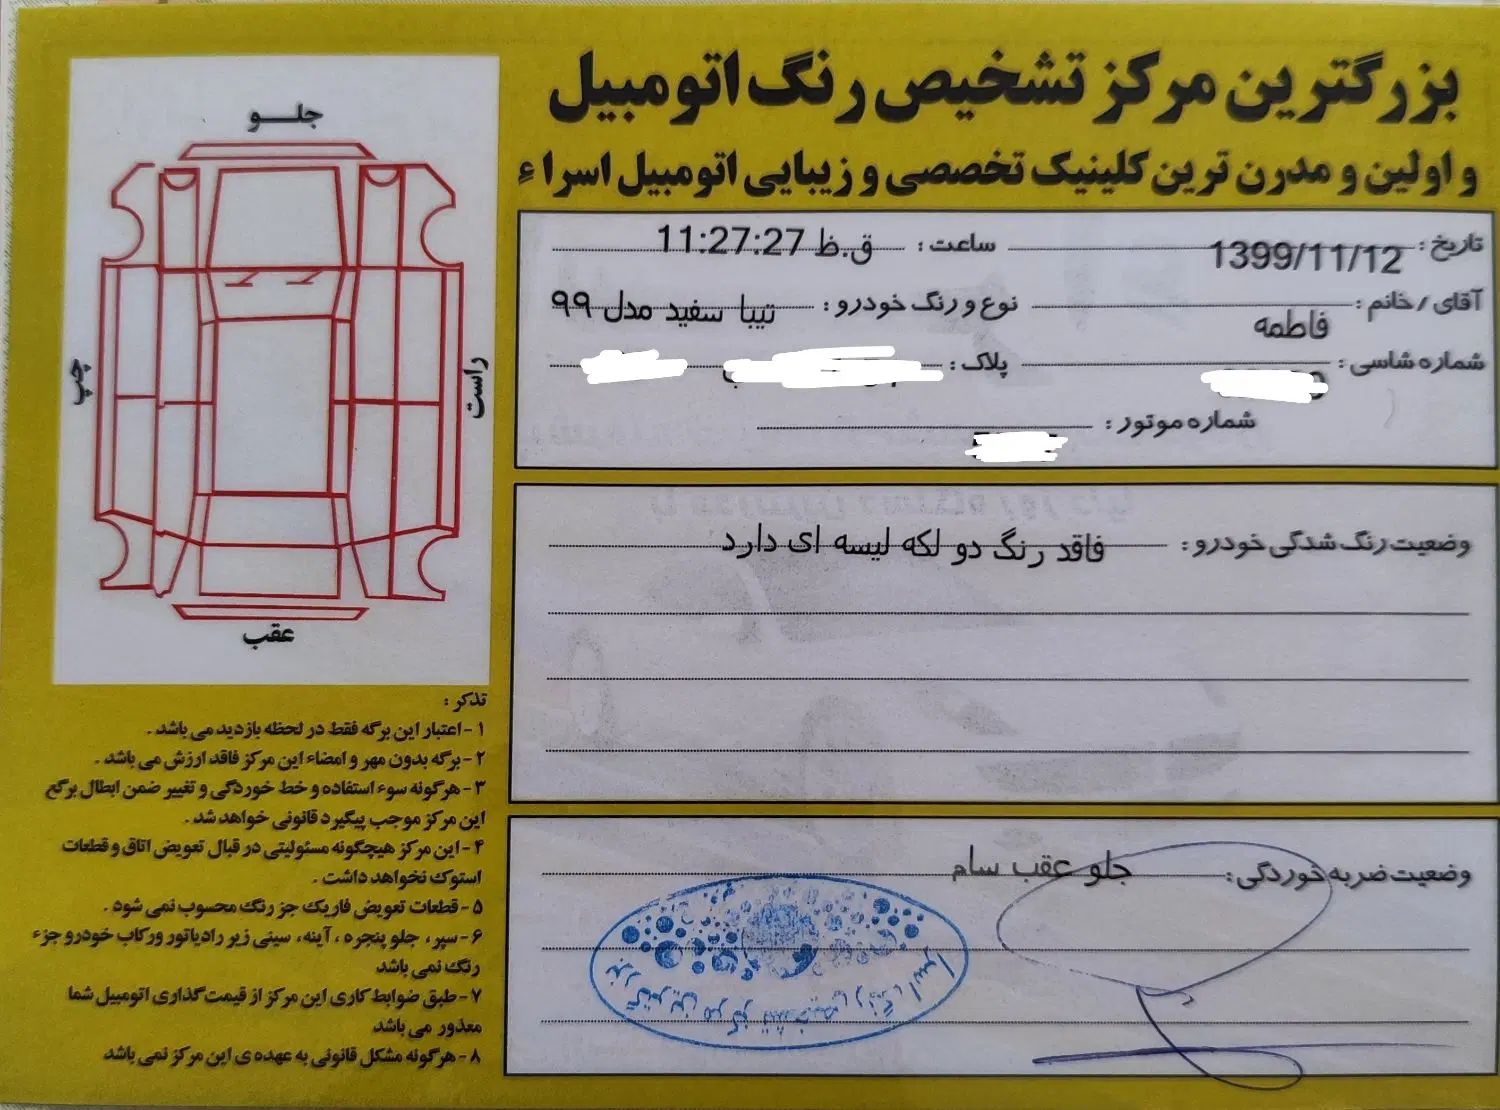 بزرگترین مرکز تشخیص رنگ اتومبیل
و اولین و مدرن ترین کلینیک تخصصی و زیبایی اتومبیل اسراء
تاریخ : 1399/11/12 ساعت : 11:27:27 ق.ظ
آقای / خانم : فاطمه نوع و رنگ خودرو : تیبا سفید مدل ۹۹
شماره شاسی : پلاک :
شماره موتور :
وضعیت رنگ شدگی خودرو : فاقد رنگ دو لکه لیسه ای دارد
وضعیت ضربه خوردگی: جلو عقب سام
بزرگترین مرکز تشخیص رنگ اسرا
جلو
چپ
راست
عقب
تذکر :
۱ - اعتبار این برگه فقط در لحظه بازدید می باشد .
۲ - برگه بدون مهر و امضاء این مرکز فاقد ارزش می باشد .
۳ - هرگونه سوء استفاده و خط خوردگی و تغییر ضمن ابطال برگع
این مرکز موجب پیگیرد قانونی خواهد شد .
۴ - این مرکز هیچگونه مسئولیتی در قبال تعویض اتاق و قطعات
استوک نخواهد داشت .
۵ - قطعات تعویض فابریک جز رنگ محسوب نمی شود .
۶ - سپر ، جلو پنجره ، آینه ، سینی زیر رادیاتور ورکاب خودرو جزء
رنگ نمی باشد
۷ - طبق ضوابط کاری این مرکز از قیمت گذاری اتومبیل شما
معذور می باشد
۸ - هرگونه مشکل قانونی به عهده ی این مرکز نمی باشد